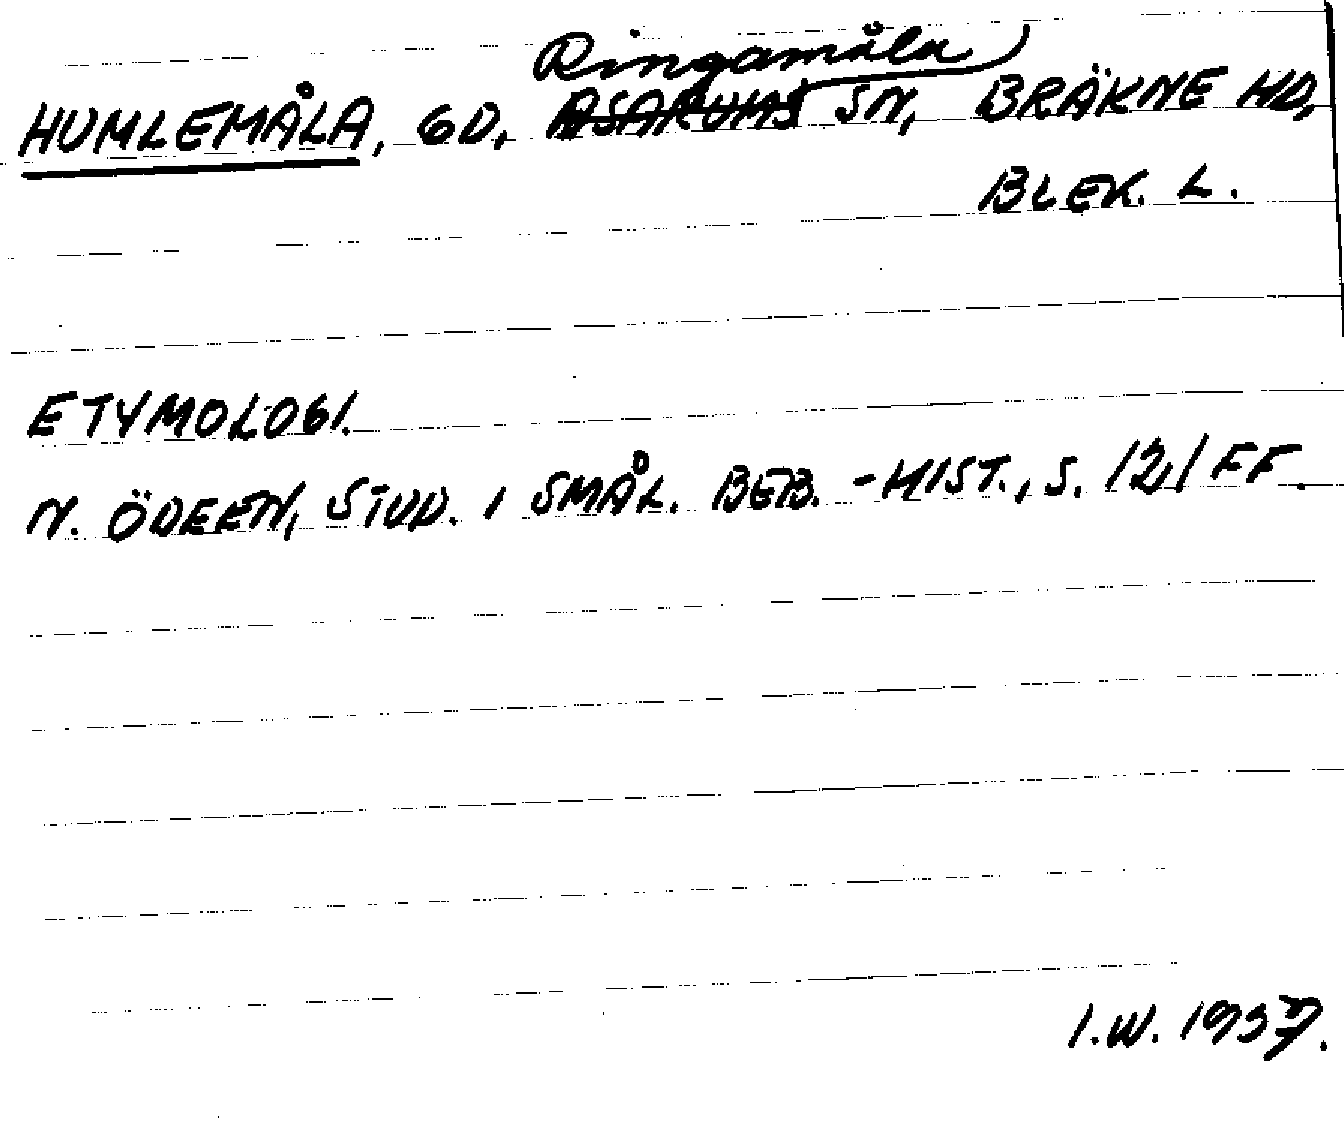 Ringamåla
HUMLEMÅLA, GD, ASARUMS SN, BRÄKNE HD,
BLEK. L.
ETYMOLOGI.
N. ÖDEEN, STUD. I SMÅL. BEB.-HIST., S. 121 FF.
I.W. 1937.